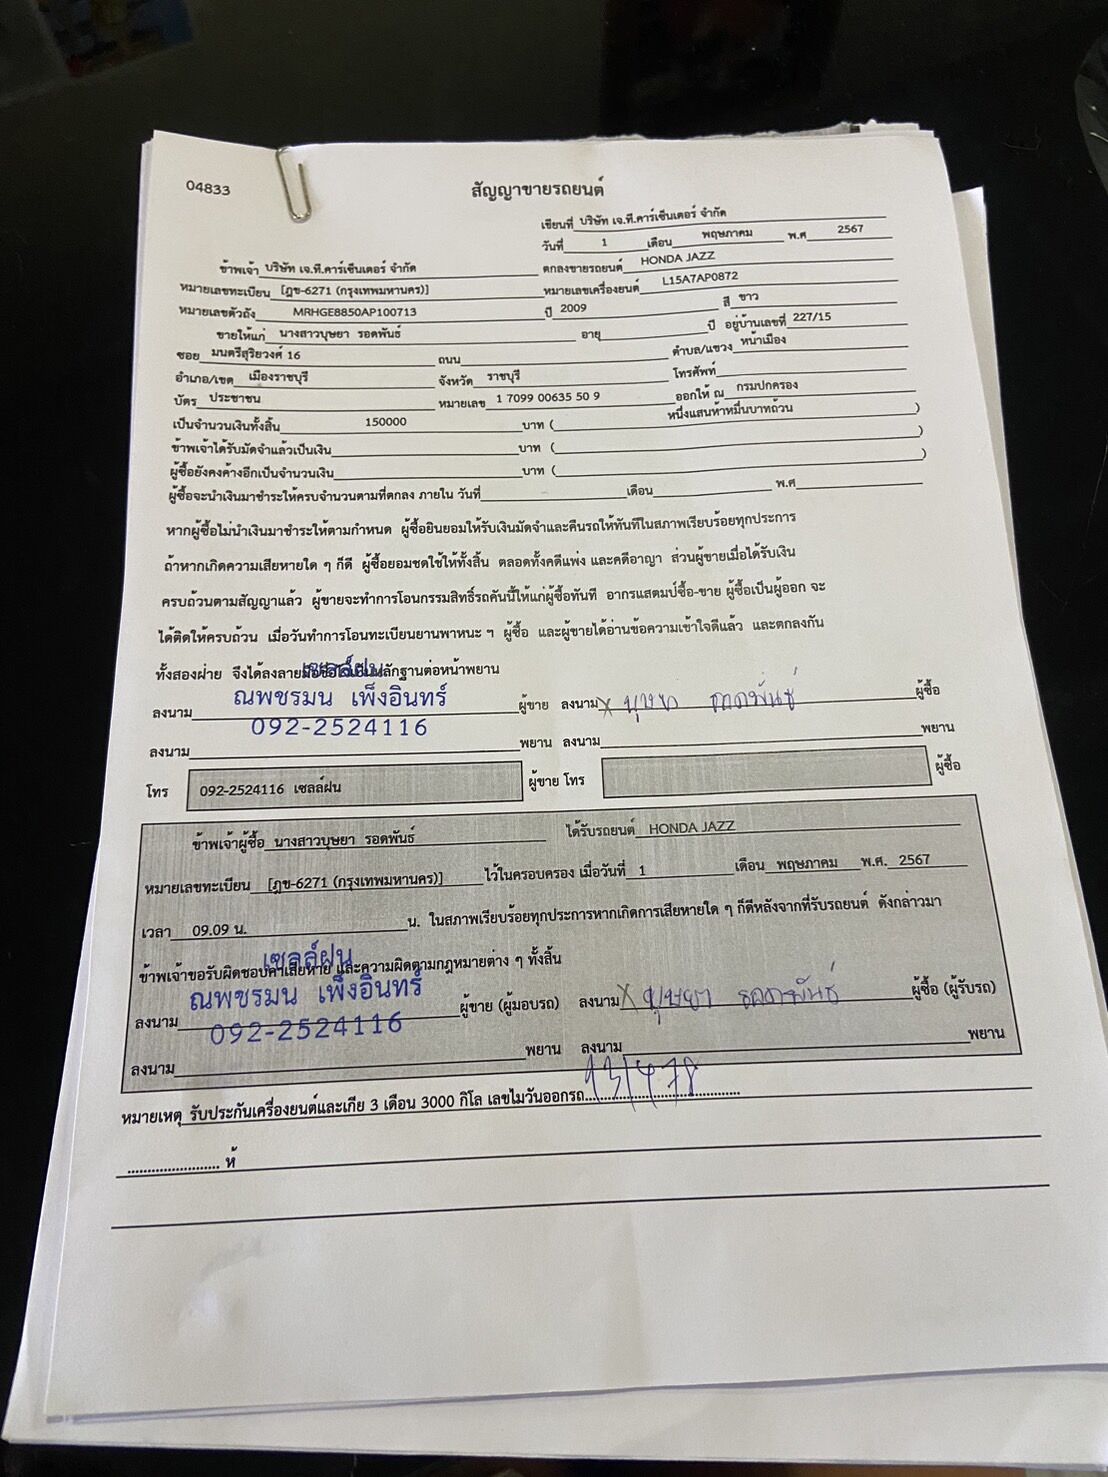 04833
สัญญาขายรถยนต์
เขียนที่ บริษัท เจ.ที.คาร์เซ็นเตอร์ จำกัด
วันที่ 1 เดือน พฤษภาคม พ.ศ 2567
ข้าพเจ้า บริษัท เจ.ที.คาร์เซ็นเตอร์ จำกัด ตกลงขายรถยนต์ HONDA JAZZ
หมายเลขทะเบียน [ฎข-6271 (กรุงเทพมหานคร)] หมายเลขเครื่องยนต์ L15A7AP0872
หมายเลขตัวถัง MRHGE8850AP100713 ปี 2009 สี ขาว
ขายให้แก่ นางสาวบุษยา รอดพันธ์ อายุ ปี อยู่บ้านเลขที่ 227/15
ซอย มนตรีสุริยวงศ์ 16 ถนน ตำบล/แขวง หน้าเมือง
อำเภอ/เขต เมืองราชบุรี จังหวัด ราชบุรี โทรศัพท์
บัตร ประชาชน หมายเลข 1 7099 00635 50 9 ออกให้ ณ กรมปกครอง
เป็นจำนวนเงินทั้งสิ้น 150000 บาท ( หนึ่งแสนห้าหมื่นบาทถ้วน )
ข้าพเจ้าได้รับมัดจำแล้วเป็นเงิน บาท ( )
ผู้ซื้อยังคงค้างอีกเป็นจำนวนเงิน บาท ( )
ผู้ซื้อจะนำเงินมาชำระให้ครบจำนวนตามที่ตกลง ภายใน วันที่ เดือน พ.ศ
หากผู้ซื้อไม่นำเงินมาชำระให้ตามกำหนด ผู้ซื้อยินยอมให้รับเงินมัดจำและคืนรถให้ทันทีในสภาพเรียบร้อยทุกประการ
ถ้าหากเกิดความเสียหายใด ๆ ก็ดี ผู้ซื้อยอมชดใช้ให้ทั้งสิ้น ตลอดทั้งคดีแพ่ง และคดีอาญา ส่วนผู้ขายเมื่อได้รับเงิน
ครบถ้วนตามสัญญาแล้ว ผู้ขายจะทำการโอนกรรมสิทธิ์รถคันนี้ให้แก่ผู้ซื้อทันที อากรแสตมป์ซื้อ-ขาย ผู้ซื้อเป็นผู้ออก จะ
ได้ติดให้ครบถ้วน เมื่อวันทำการโอนทะเบียนยานพาหนะ ฯ ผู้ซื้อ และผู้ขายได้อ่านข้อความเข้าใจดีแล้ว และตกลงกัน
ทั้งสองฝ่าย จึงได้ลงลายมือชื่อไว้เป็นหลักฐานต่อหน้าพยาน
เซลล์ฝน
ลงนาม ณพชรมน เพ็งอินทร์ ผู้ขาย ลงนาม x บุษยา รอดพันธ์ ผู้ซื้อ
092-2524116
ลงนาม พยาน ลงนาม พยาน
โทร 092-2524116 เซลล์ฝน ผู้ขาย โทร ผู้ซื้อ
ข้าพเจ้าผู้ซื้อ นางสาวบุษยา รอดพันธ์ ได้รับรถยนต์ HONDA JAZZ
หมายเลขทะเบียน [ฎข-6271 (กรุงเทพมหานคร)] ไว้ในครอบครอง เมื่อวันที่ 1 เดือน พฤษภาคม พ.ศ. 2567
เวลา 09.09 น. น. ในสภาพเรียบร้อยทุกประการหากเกิดการเสียหายใด ๆ ก็ดีหลังจากที่รับรถยนต์ ดังกล่าวมา
ข้าพเจ้าขอรับผิดชอบค่าเสียหาย และความผิดตามกฎหมายต่าง ๆ ทั้งสิ้น
เซลล์ฝน
ณพชรมน เพ็งอินทร์
ลงนาม ผู้ขาย (ผู้มอบรถ) ลงนาม x บุษยา รอดพันธ์ ผู้ซื้อ (ผู้รับรถ)
092-2524116
ลงนาม พยาน ลงนาม พยาน
หมายเหตุ รับประกันเครื่องยนต์และเกีย 3 เดือน 3000 กิโล เลขไมวันออกรถ
ห้